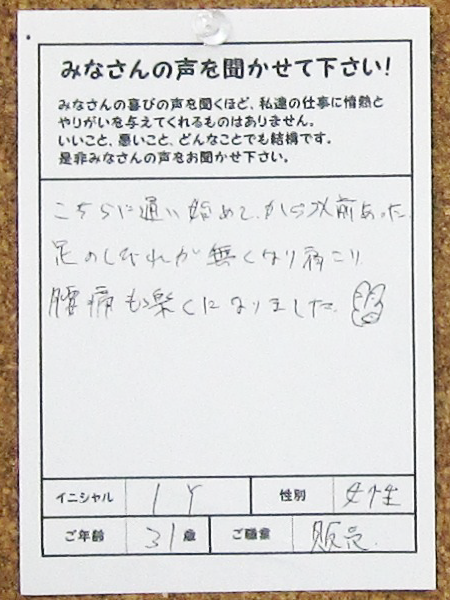 みなさんの声を聞かせて下さい!
みなさんの喜びの声を聞くほど、私達の仕事に情熱と
やりがいを与えてくれるものはありません。
いいこと、悪いこと、どんなことでも結構です。
是非みなさんの声をお聞かせ下さい。
こちらに通い始めてから以前あった
足のしびれが無くなり肩こり
腰痛も楽くになりました
イニシャル I Y 性別 女性
ご年齢 31歳 ご職業 販売